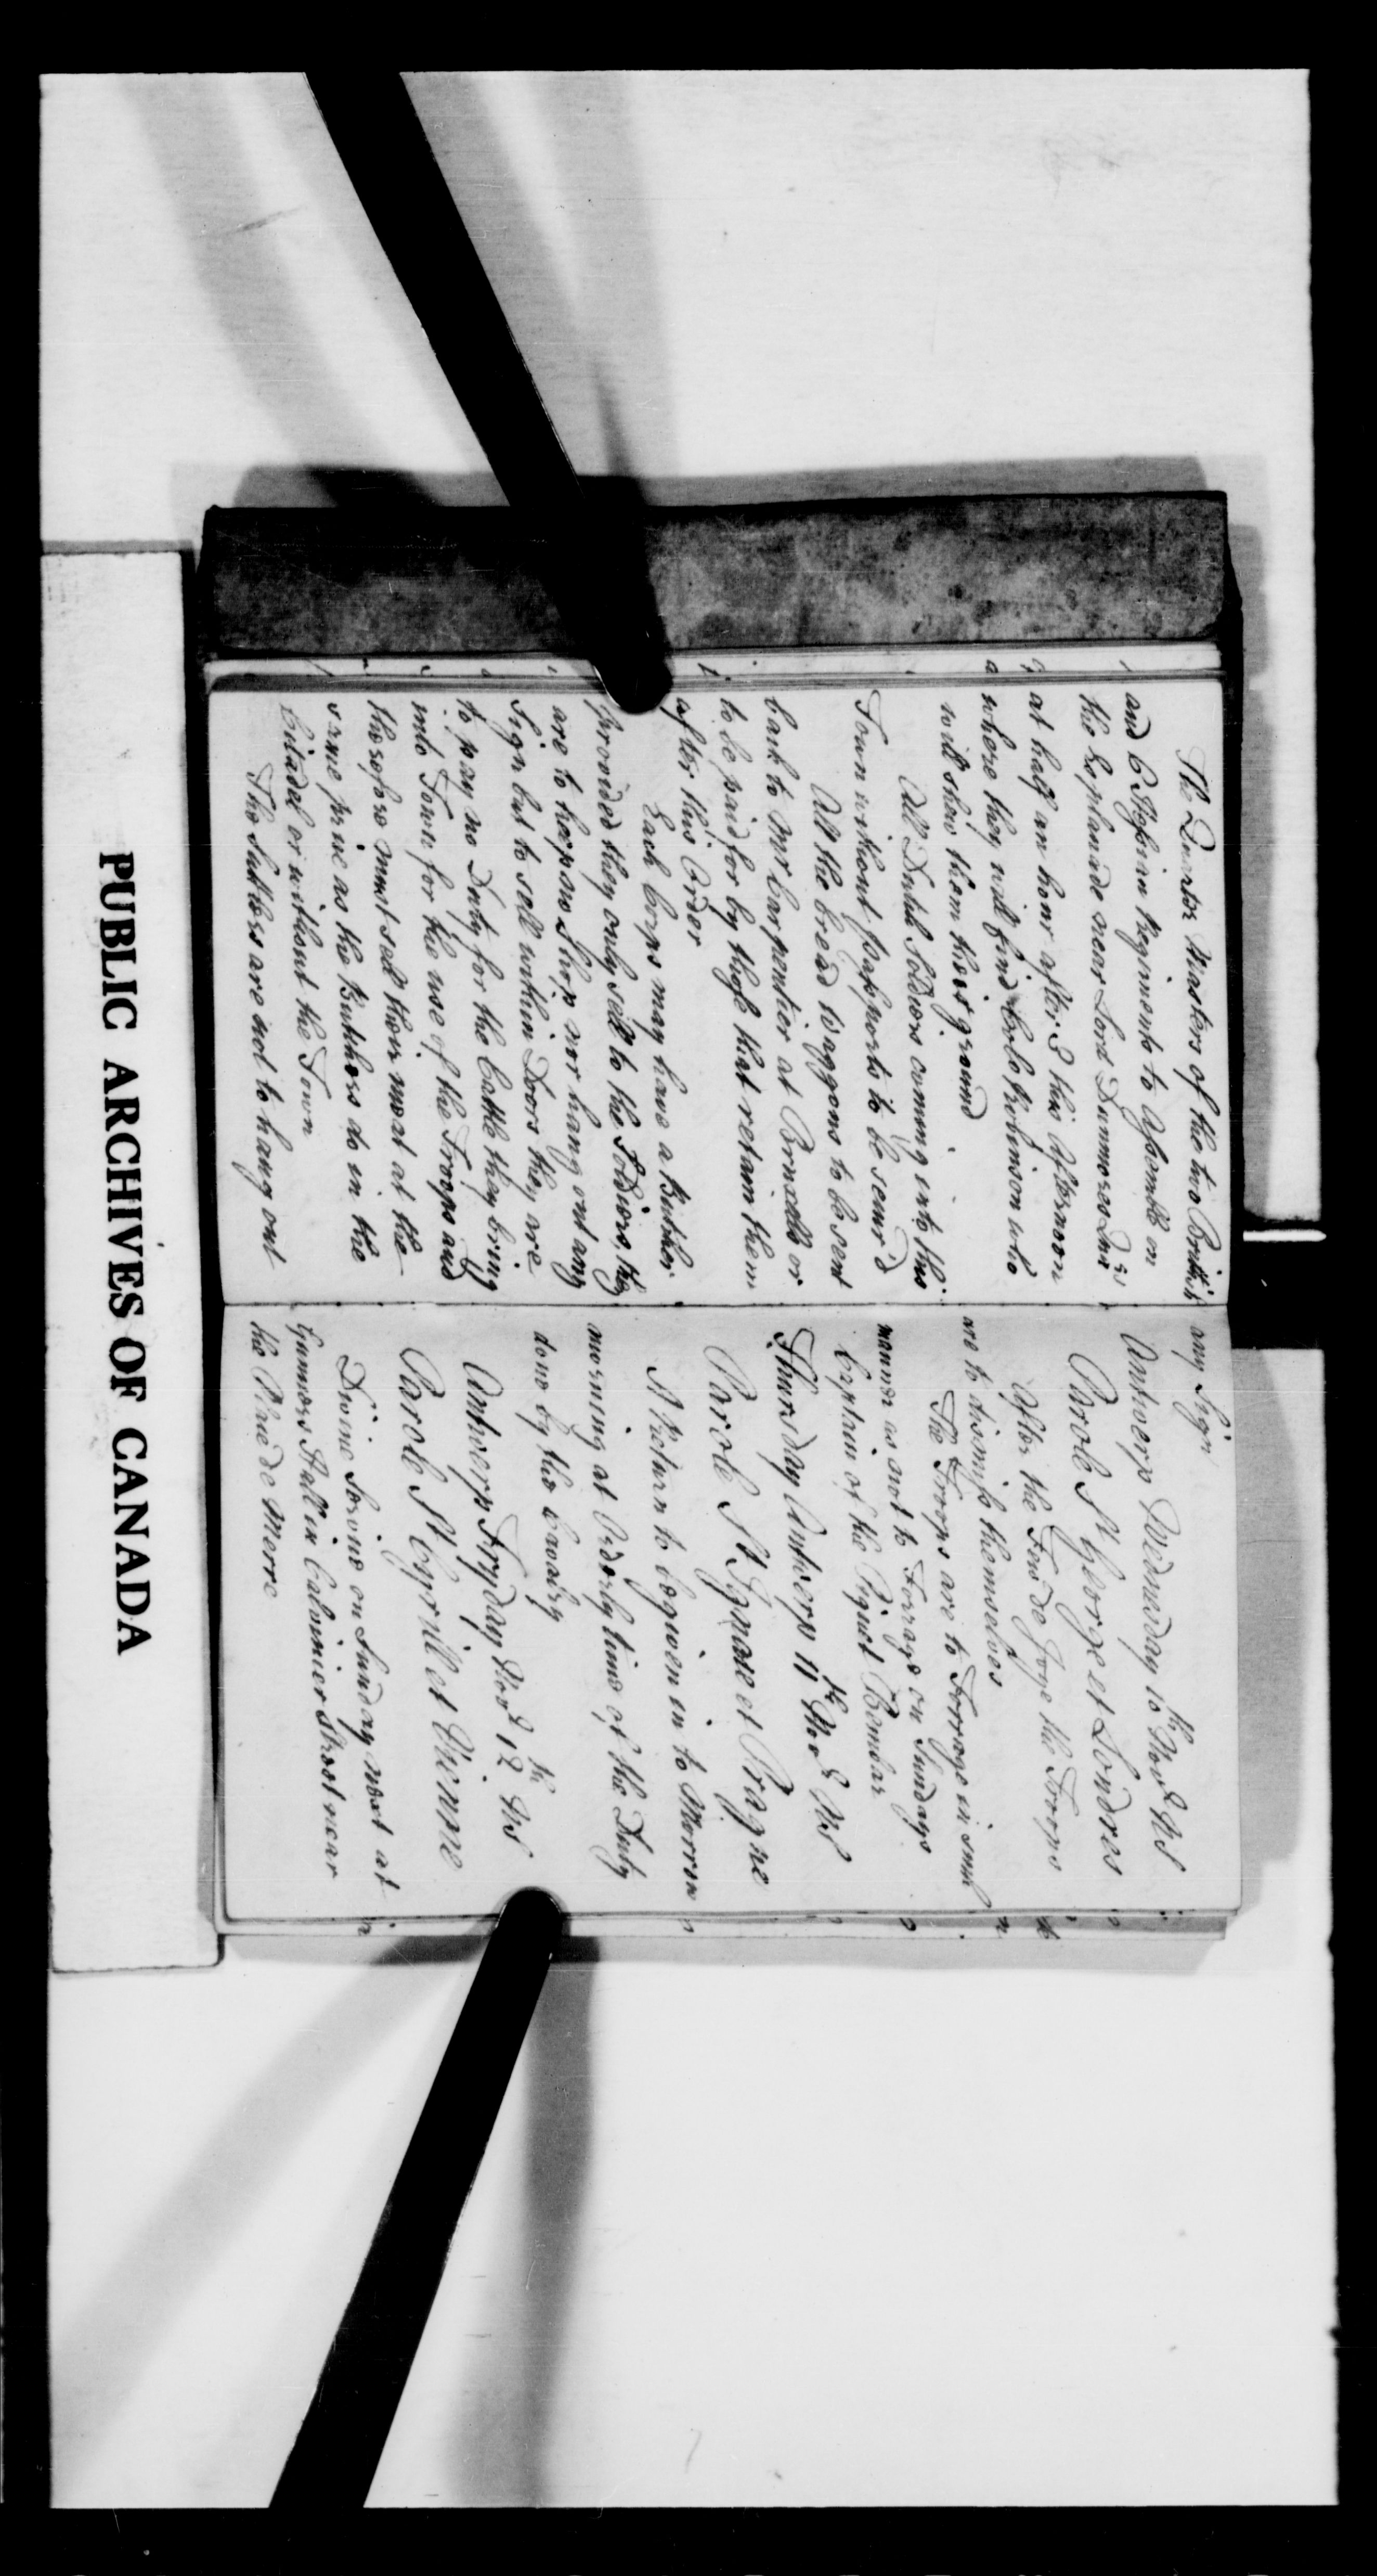 The Quarter Masters of the two British
and 6 Hessian Regiments to Assemble on
the Esplanade near Lord Dunmores Qurs
at half an hour after 3 this Afternoon
where they will find Corlo Robinson who
will show them their ground
All Dutch Soldiers coming into this
Town without passports to be secur'd
All the bread Waggons to be sent
back to Mr Carpentier at Bruxells or
to be paid for by those that retain them
after this Order
Each Corps may have a Butcher
provided they only sell to the Soldiers, they
are to keep no Shop nor hang out any
Sign but to sell within Doors they are
to pay no Duty for the Cattle they bring
into Town for the use of the Troops and
therefore must sell their meat at the
same price as the Butchers do in the
Citadel or without the Town
The Sutlers are not to hang out
any Sign
Antwerp Wednesday 10th Novr NS
Parole St George et Londres
After the Feu de Joye the Troops
are to dismiss themselves
The Troops are to Forrage in such
manner as not to Forrage on Sundays
Captain of the Piquet Bombar
Thursday Antwerp 11th Novr NS
Parole St Ignace et Prague
A Return to be given in to Morrow
morning at Orderly time, of the Duty
done by the Cavalry
Antwerp Fryday Novr 12th NS
Parole St Cyrill et Vienne
Divine Service on Sunday next at
Gunners Hall in Calvinier Street near
the Place de Merre
PUBLIC ARCHIVES OF CANADA